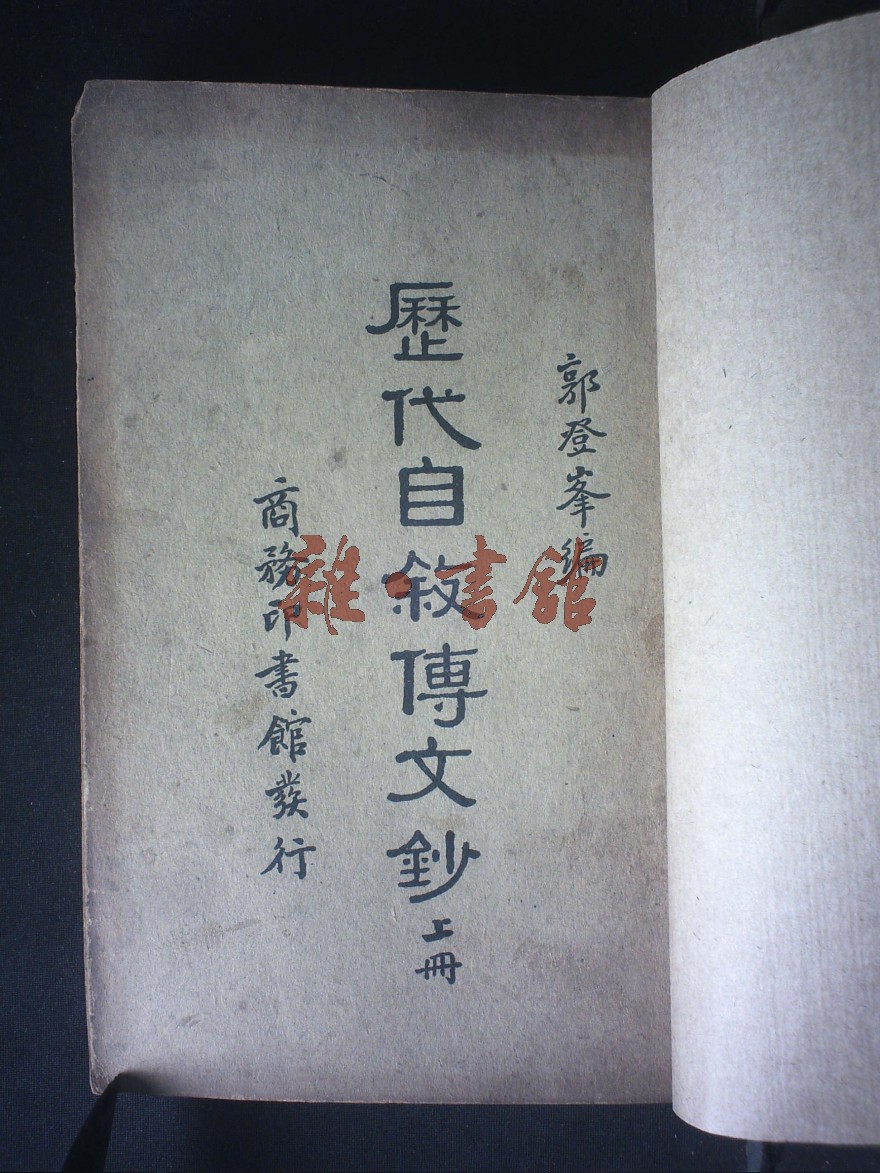 郭登峯編
歷代自敘傳文鈔 上冊
商務印書館發行
雜·書館